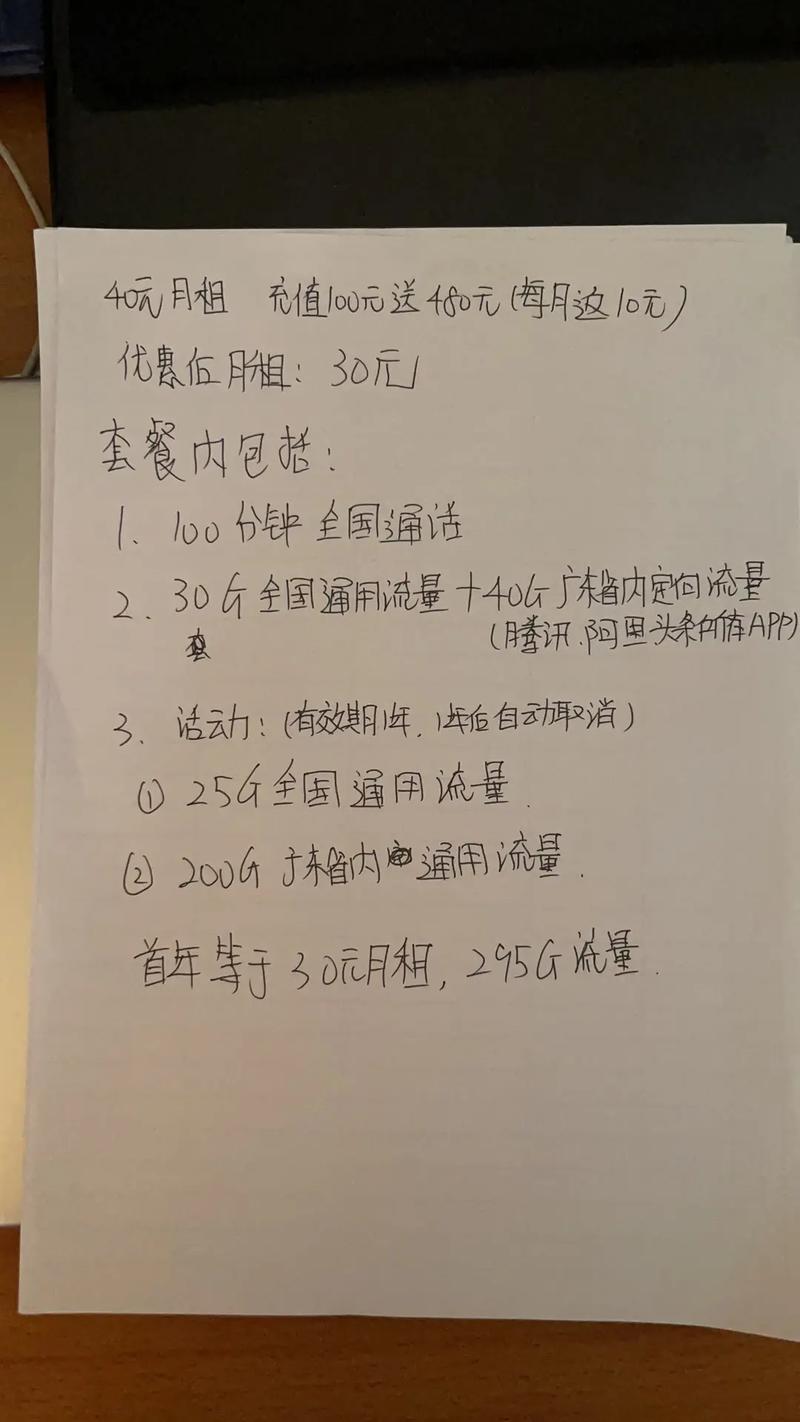 40元月租 充值100元送480元(每月送10元)
优惠后月租: 30元
套餐内包括:
1. 100分钟全国通话
2. 30G全国通用流量+40G广东省内定向流量
(腾讯.阿里头条的APP)
3. 活动: (有效期1年, 1年后自动取消)
① 25G全国通用流量.
② 200G广东省内通用流量.
首年等于30元月租, 295G流量.